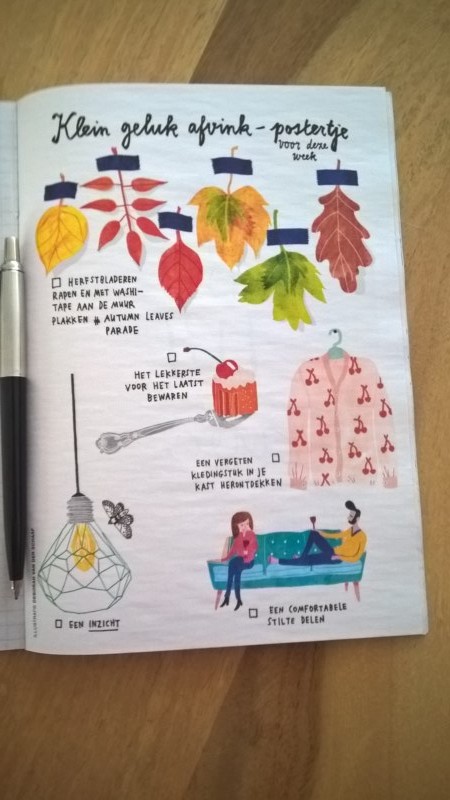 Klein geluk afvink - postertje
voor deze
week
HERFSTBLADEREN
RAPEN EN MET WASHI-
TAPE AAN DE MUUR
PLAKKEN # AUTUMN LEAVES
PARADE
HET LEKKERSTE
VOOR HET LAATST
BEWAREN
EEN VERGETEN
KLEDINGSTUK IN JE
KAST HERONTDEKKEN
EEN INZICHT
EEN COMFORTABELE
STILTE DELEN